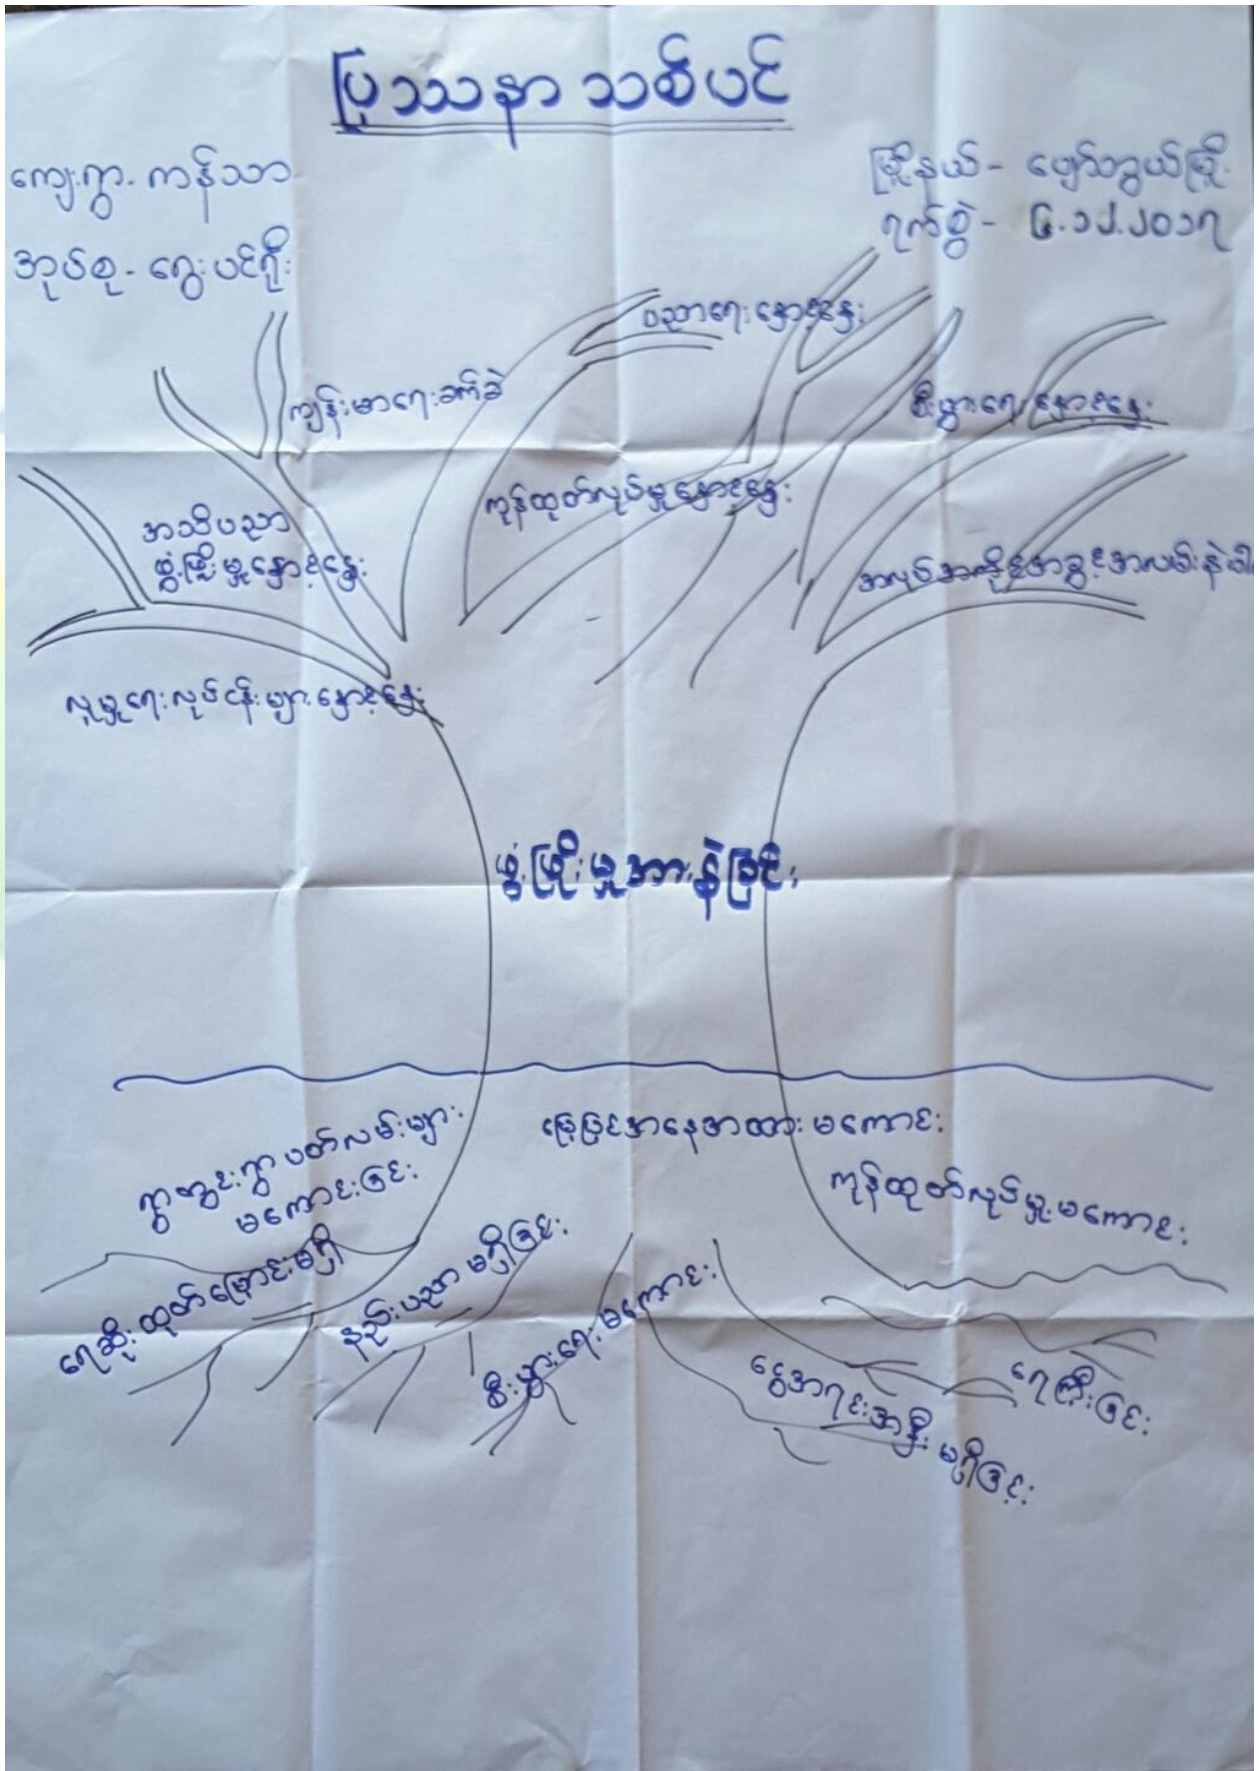 ပြဿနာ သစ်ပင်
ကျေးရွာ - ကန်သာ
အုပ်စု - ရွေးပင်ရိုး
မြို့နယ် - ပျော်ဘွယ်မြို့
ရက်စွဲ - ၆.၁၂.၂၀၁၇
ပညာရေးနှောင့်နှေး
ကျန်းမာရေးခက်ခဲ
စီးပွားရေးနှောင့်နှေး
ကုန်ထုတ်လုပ်မှုနှောင့်နှေး
အသိပညာ
ဖွံ့ဖြိုးမှုနှောင့်နှေး
အလုပ်အကိုင်အခွင့်အလမ်းနဲပါး
လူမှုရေးလုပ်ငန်းများနှောင့်နှေး
ဖွံ့ဖြိုးမှုအားနဲခြင်း
ရွာတွင်းရွာပတ်လမ်းများ
မကောင်းခြင်း
မြေပြင်အနေအထားမကောင်း
ကုန်ထုတ်လုပ်မှုမကောင်း
ရေဆိုးထုတ်မြောင်းမရှိ
နည်းပညာမရှိခြင်း
စီးပွားရေးမကောင်း
ငွေအရင်းအနှီးမရှိခြင်း
ရေကြီးခြင်း